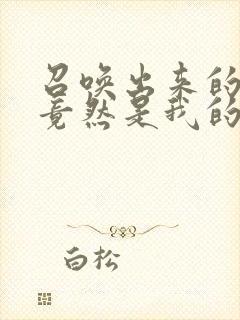 召唤出来的
竟然是我的
白松